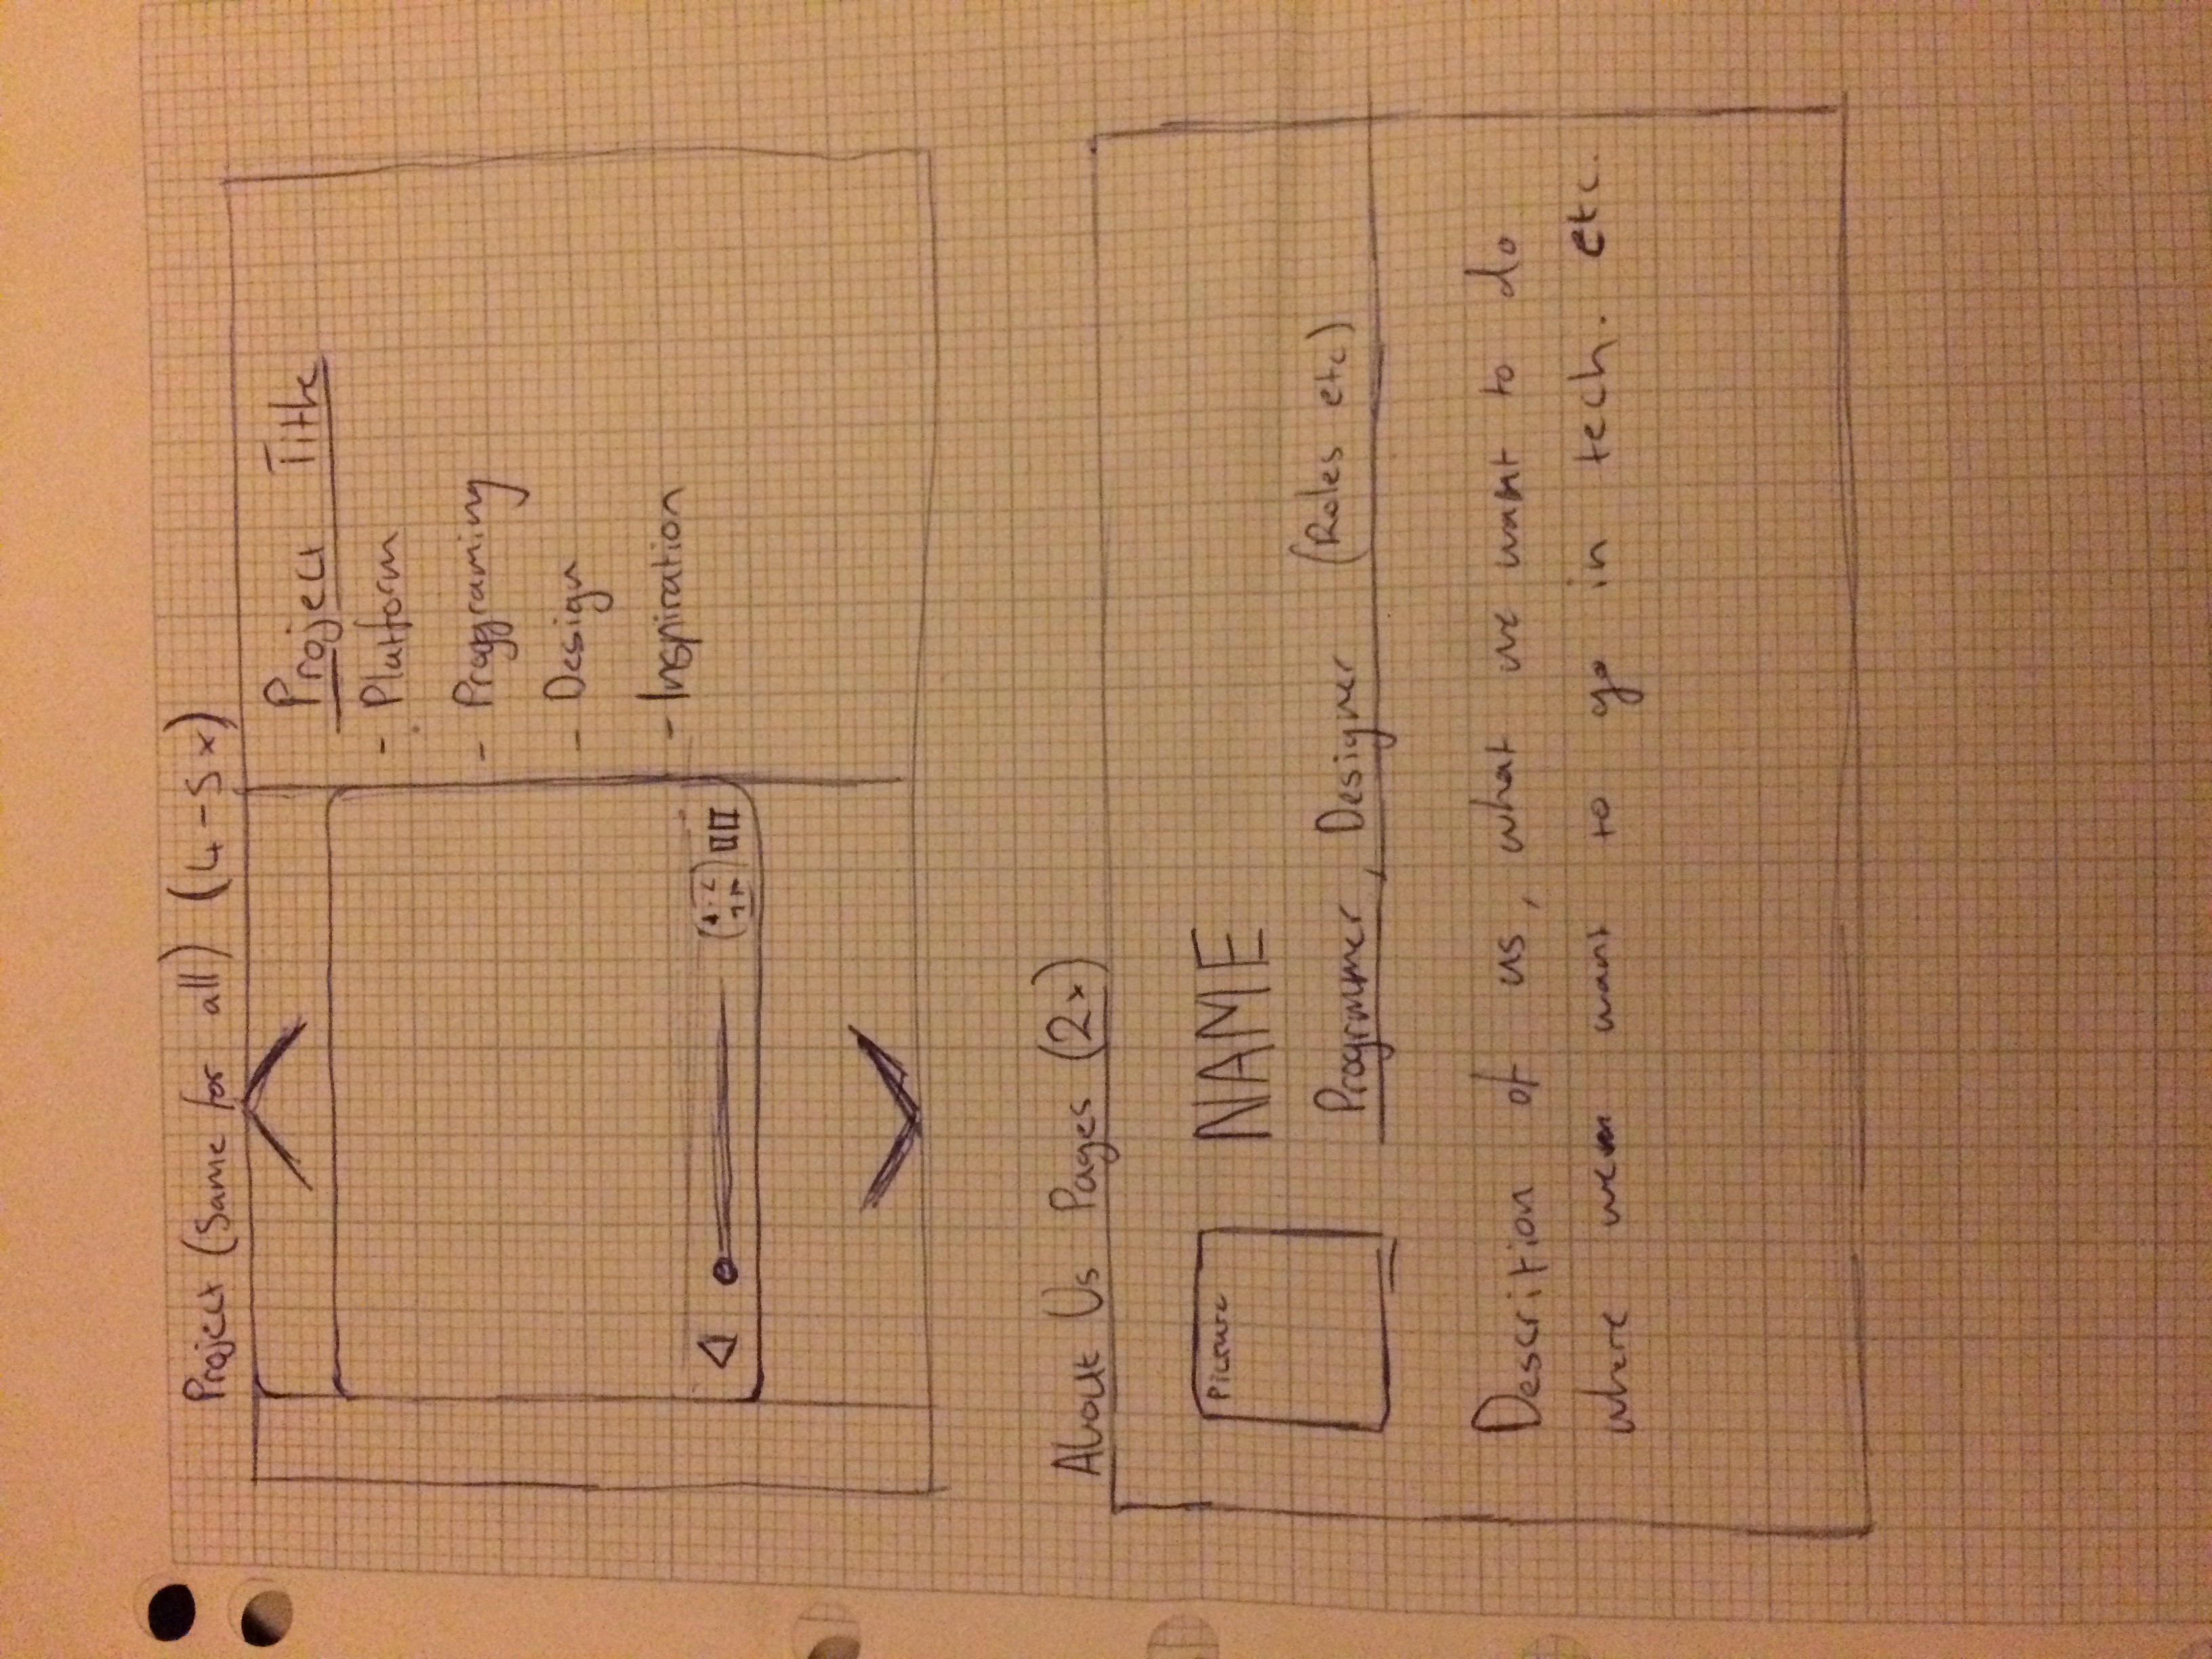 Project (Same for all) (4-5x)
Project Title
- Platform
- Proggraming
- Design
- Inspiration
About Us Pages (2x)
Picture
NAME
Progrmmer, Designer (Roles etc)
Descrition of us, what we want to do
where we want to go in tech. etc.